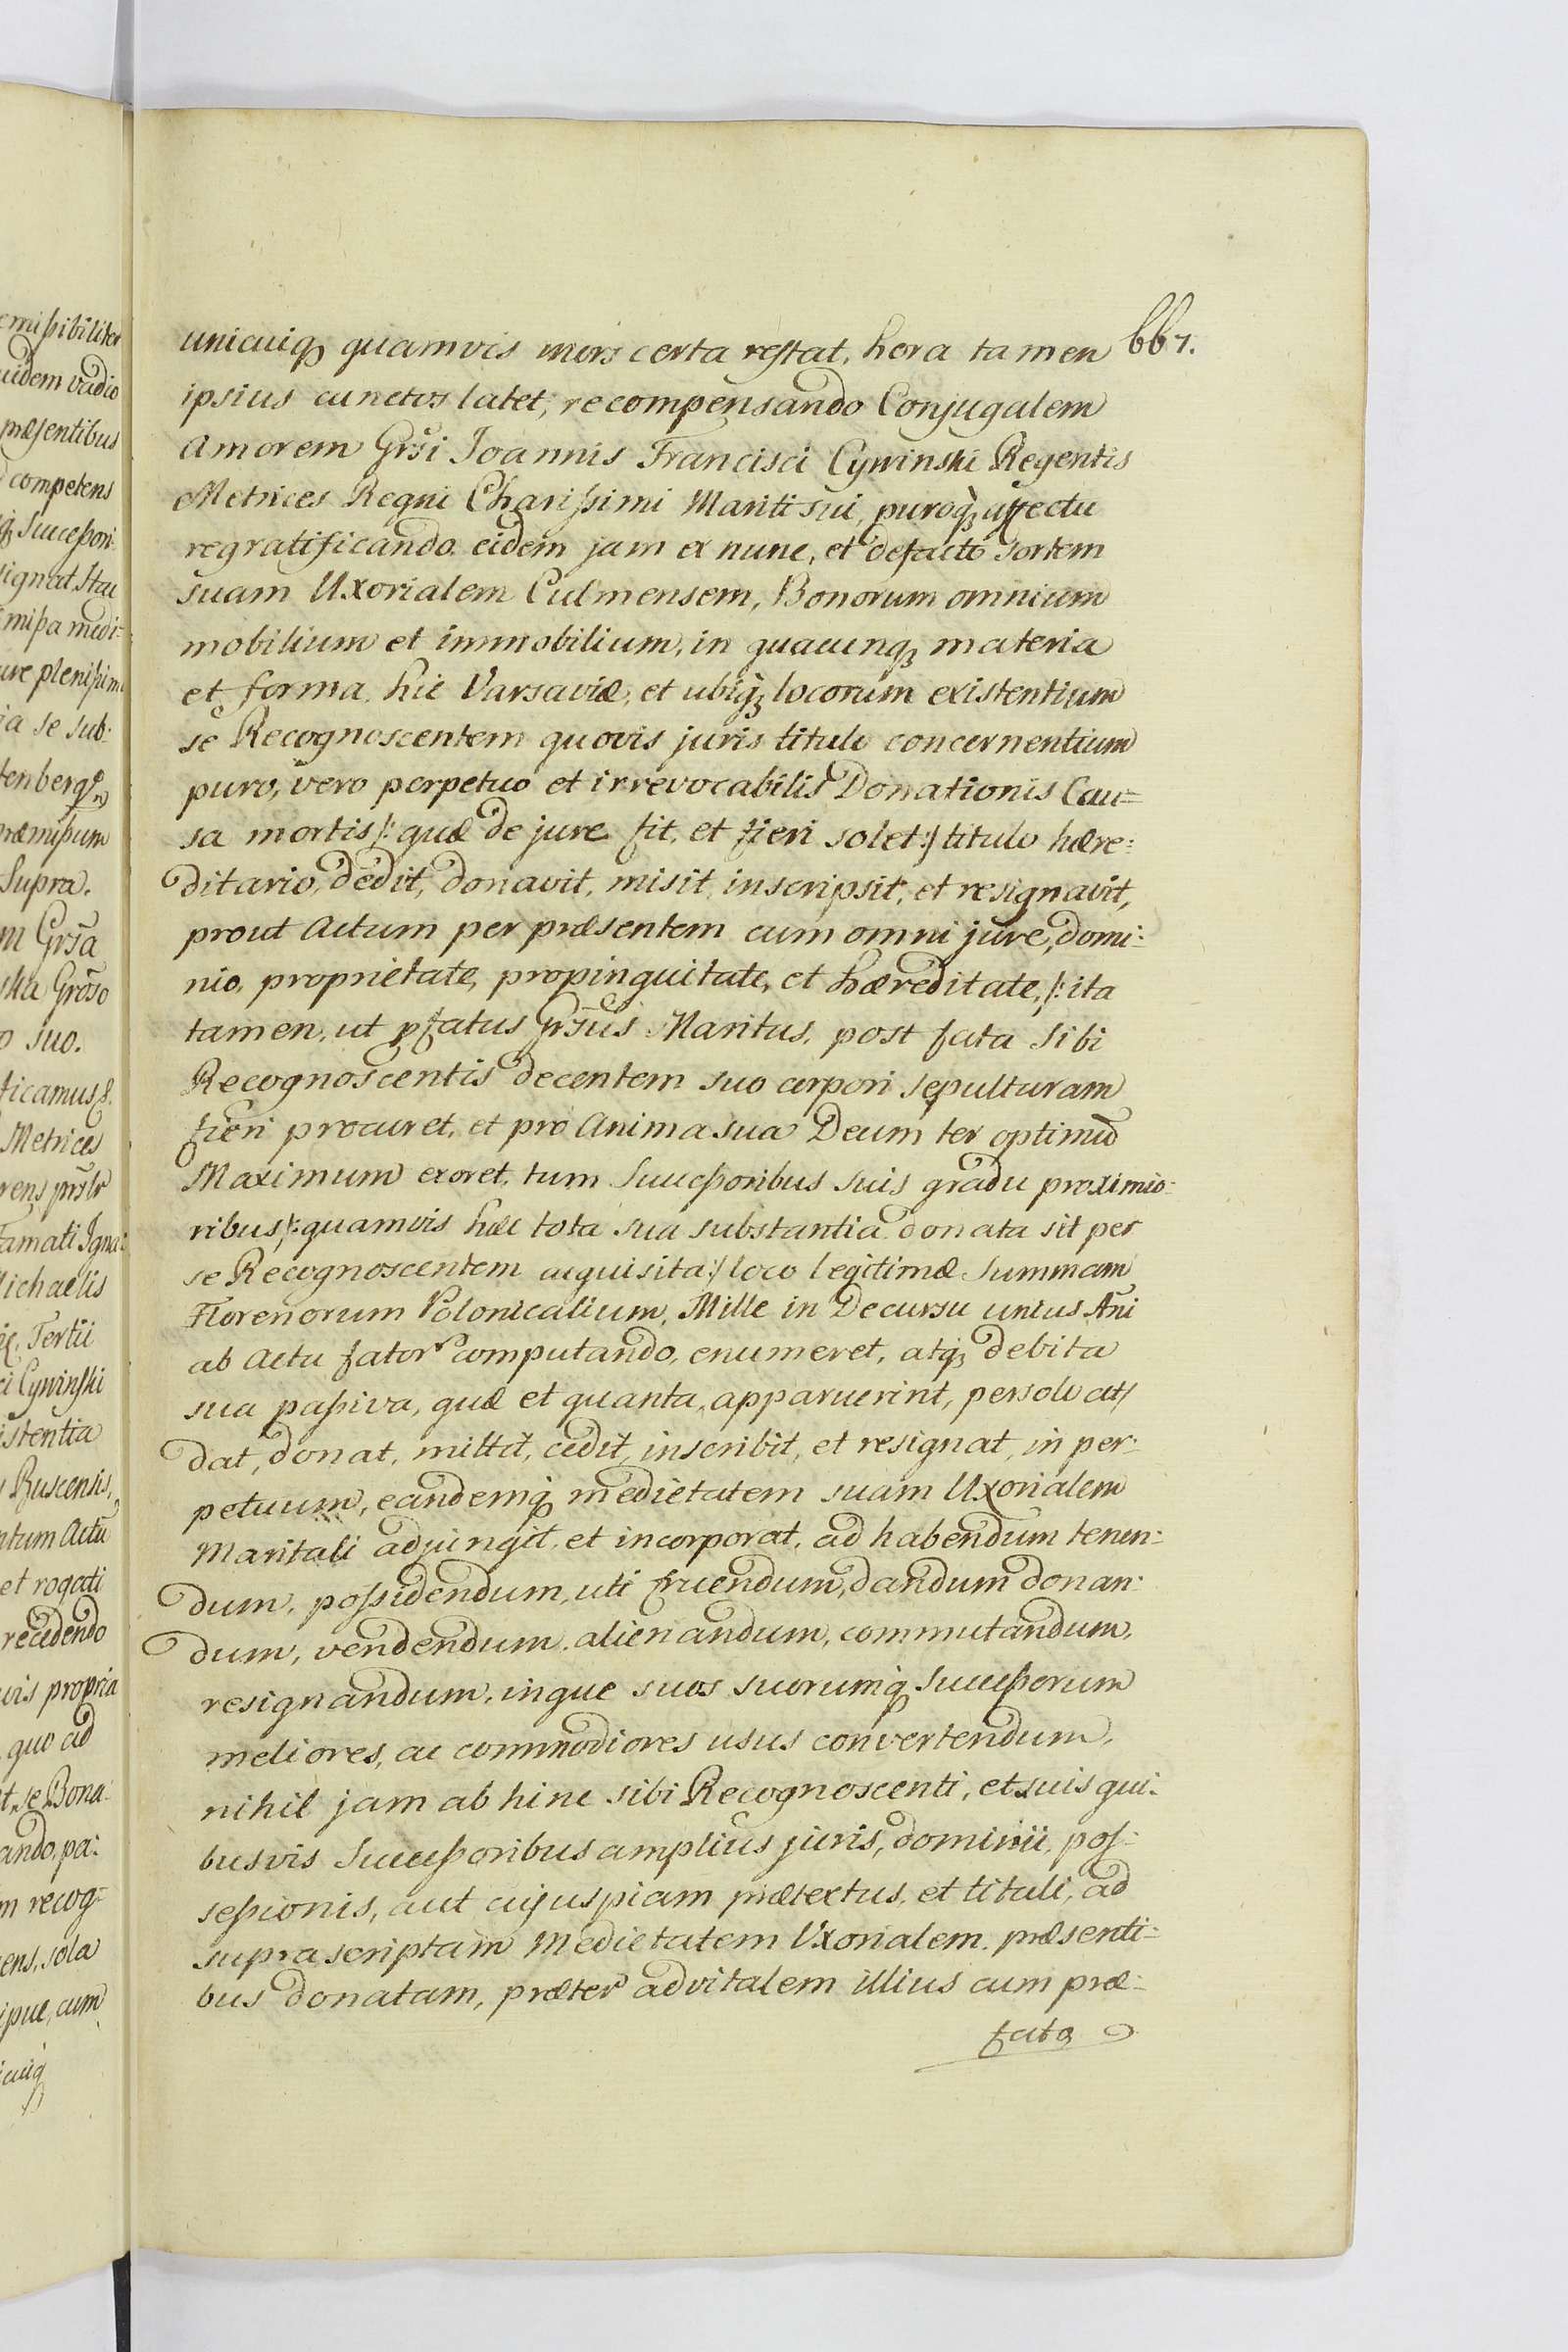 667.
unicuiq; quamvis mors certa restat, hora tamen
ipsius cunctos latet, recompensando Conjugalem
Amorem Grsi Joannis Francisci Cywinski Regentis
Metrices Regni Charissimi Mariti sui, puroq; affectu
regratificando eidem jam ex nunc, et defacto sortem
suam Uxorialem Culmensem, Bonorum omnium
mobilium et immobilium, in quacunq; materia
et forma, hic Varsaviæ, et ubiq; locorum existentium
se Recognoscentem quovis juris titulo concernentium
puro, vero perpetuo et irrevocabilis Donationis Cau=
sa mortis /: quæ de jure fit, et fieri solet :/ titulo hære:
ditario, dedit, donavit, misit, inscripsit, et resignavit,
prout Actum per præsentem cum omni jure, domi:
nio, proprietate, propinquitate, et hæreditate, /: ita
tamen, ut pfatus Grsus Maritus, post fata sibi
Recognoscentis decentem suo corpori sepulturam
fieri procuret, et pro Anima sua Deum ter optimū
Maximum exoret, tum Successoribus suis gradu proximio:
ribus, /: quamvis hæc tota sua substantia donata sit per
se Recognoscentem acquisita :/ loco legitimæ Summam
Florenorum Polonicalium, Mille in Decursu unius Añi
ab Actu fator computando, enumeret, atq; debita
sua passiva, quæ et quanta, apparuerint, persolvat /
dat, donat, mittit, cedit, inscribit, et resignat, in per:
petuum, eandemq; medietatem suam Uxorialem
Maritali adjungit, et incorporat, ad habendum tenen:
dum, possidendum, uti fruendum, dandum donan:
dum, vendendum, alienandum, commutandum,
resignandum, inque suos suorumq; Successorum
meliores, ac commodiores usus convertendum,
nihil jam ab hinc sibi Recognoscenti, et suis qui:
busvis Successoribus amplius juris, dominii, pos:
sessionis, aut cujuspiam prætextus, et tituli, ad
suprascriptam Medietatem Uxorialem præsenti=
bus donatam, præter advitalem illius cum præ:
fato